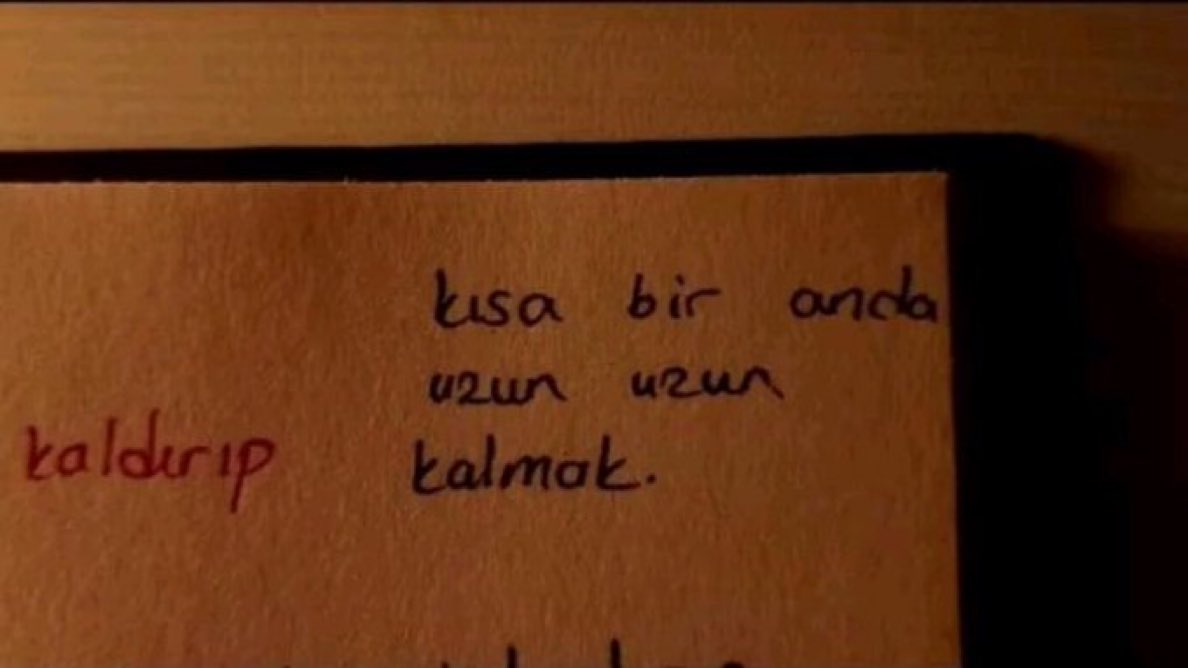 kısa bir anda
uzun uzun
kaldırıp
kalmak.